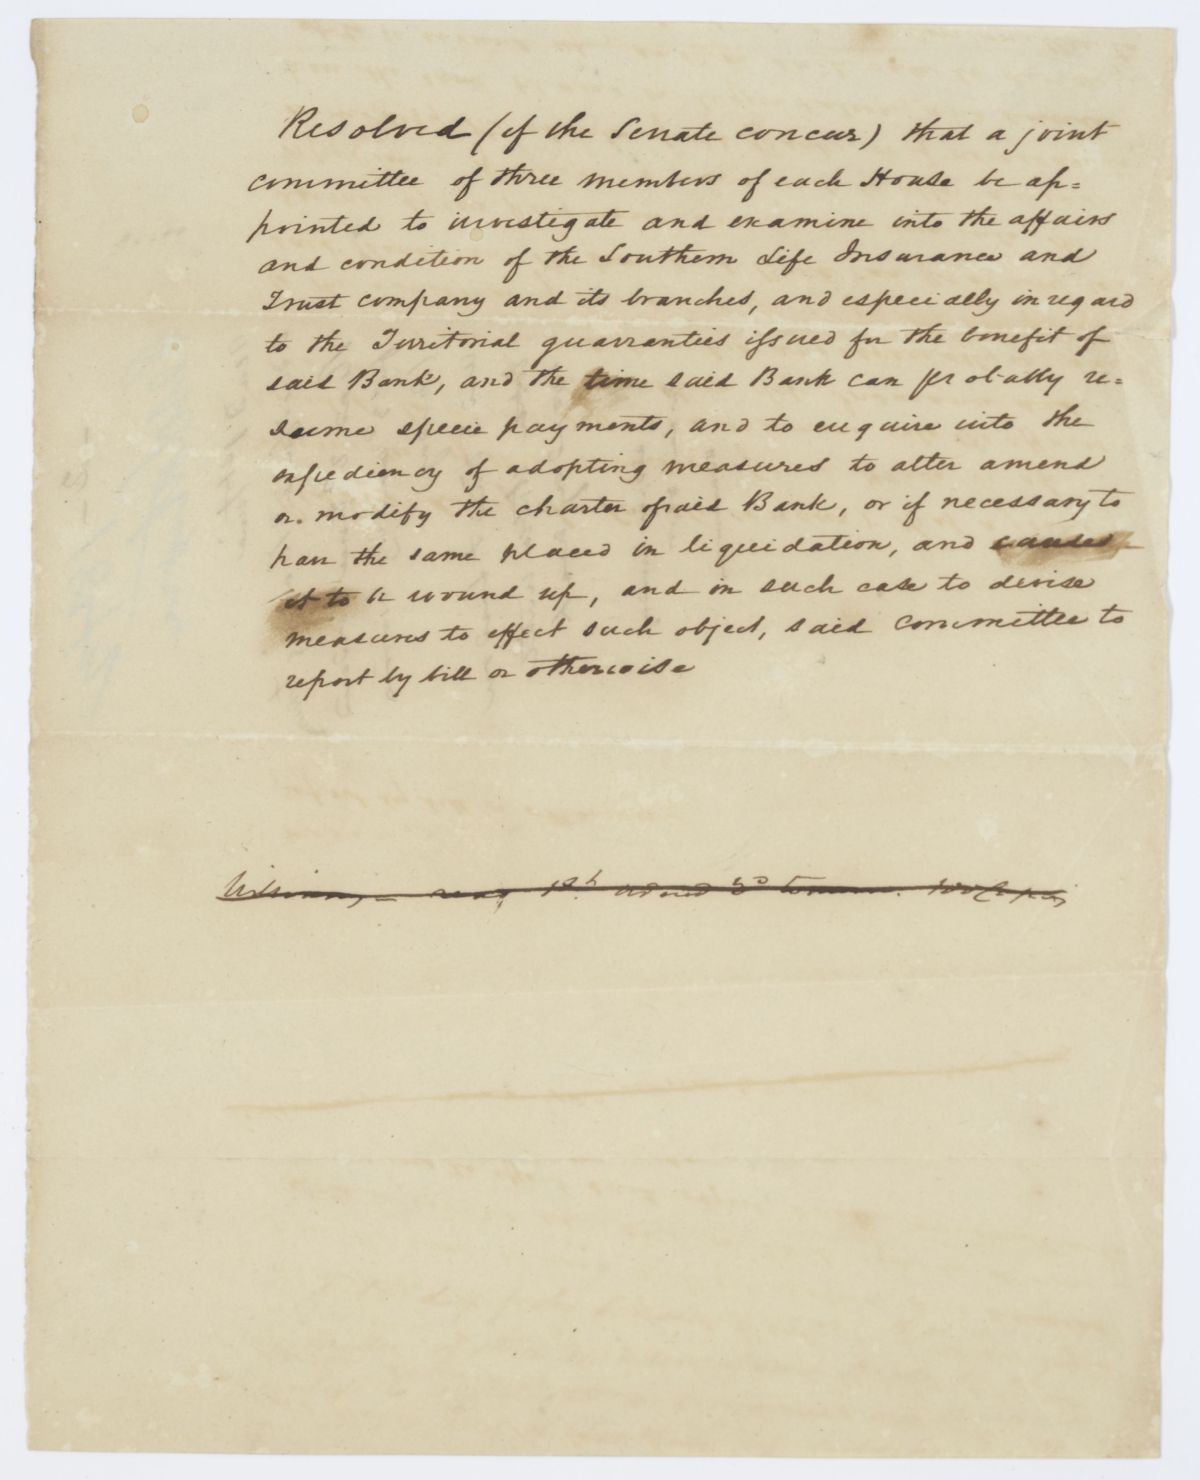 Resolved (if the Senate concur) that a joint
committee of three members of each House be ap=
pointed to investigate and examine into the affairs
and condition of the Southern Life Insurance and
Trust company and its branches, and especially in regard
to the Territorial guarranties issued for the benefit of
said Bank, and the time said Bank can probably re=
sume specie payments, and to enquire into the
expediency of adopting measures to alter amend
or modify the charter of said Bank, or if necessary to
have the same placed in liquidation, and causes
it to be wound up, and in such case to devise
measures to effect such object, said committee to
report by bill or otherwise